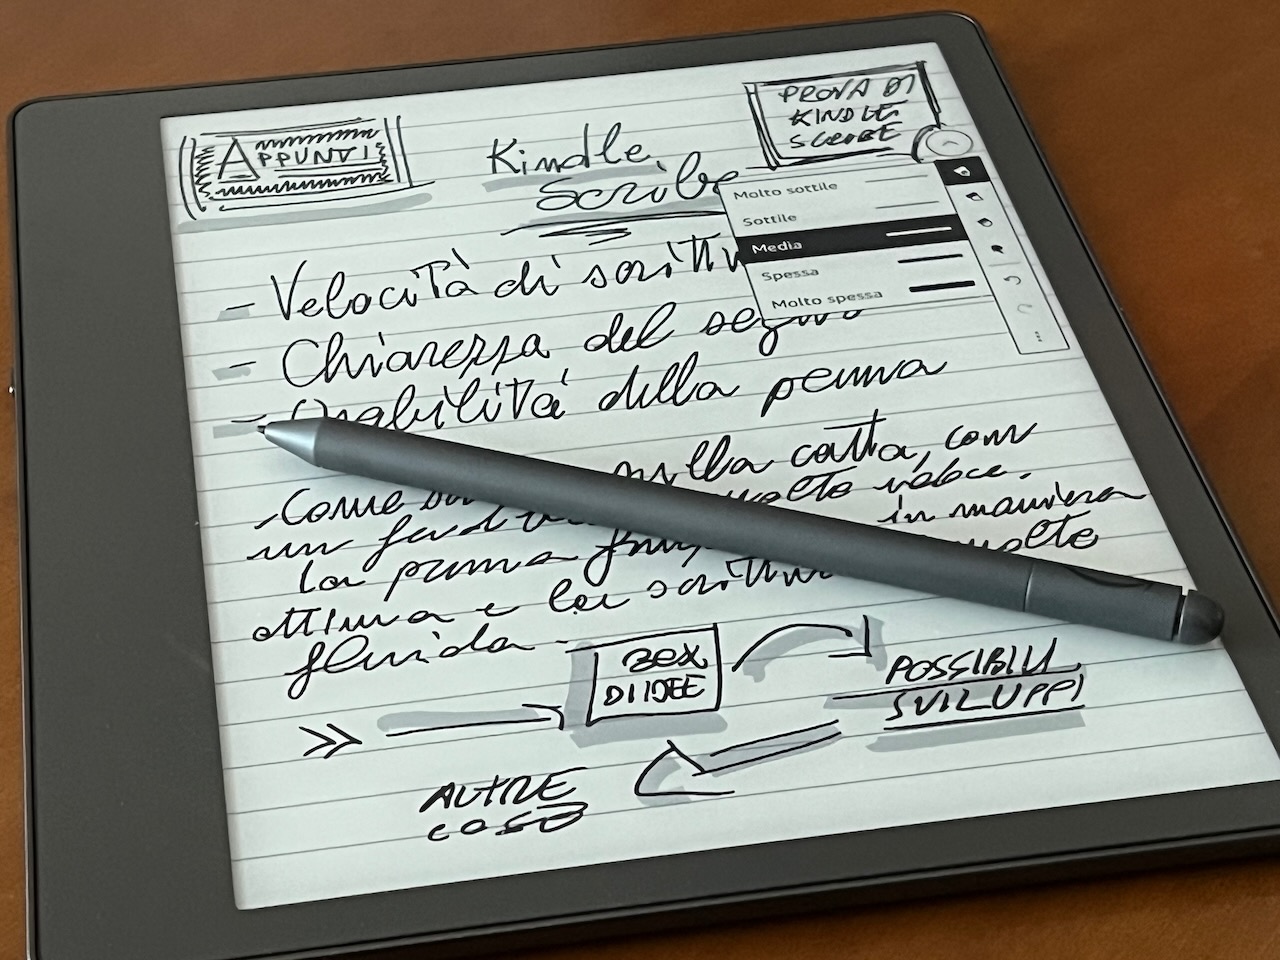 APPUNTI
Kindle
Scribe
PROVA DI
KINDLE
SCRIBE
Molto sottile
Sottile
Media
Spessa
Molto spessa
- Velocità di scrittu
- Chiarezza del segno
- Usabilità della penna
Come su sulla carta, con
un molto veloce.
La penna in maniera
ottima e la scrittura molto
fluida -
BOX
DI IDEE
POSSIBILI
SVILUPPI
ALTRE
COSE